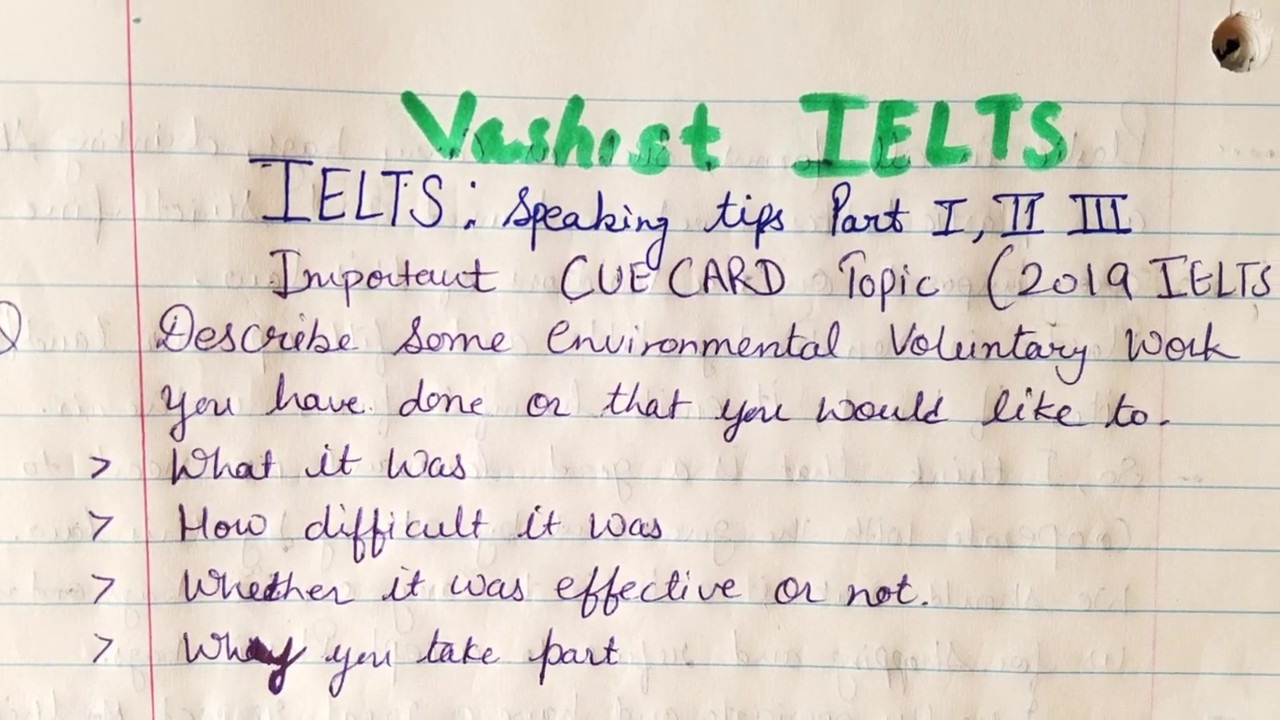 Vashist IELTS
IELTS: Speaking tips Part I, II III
Important CUE CARD Topic (2019 IELTS
Q Describe some environmental Voluntary work
you have done or that you would like to.
> What it was
> How difficult it was
> Whether it was effective or not.
> Why you take part